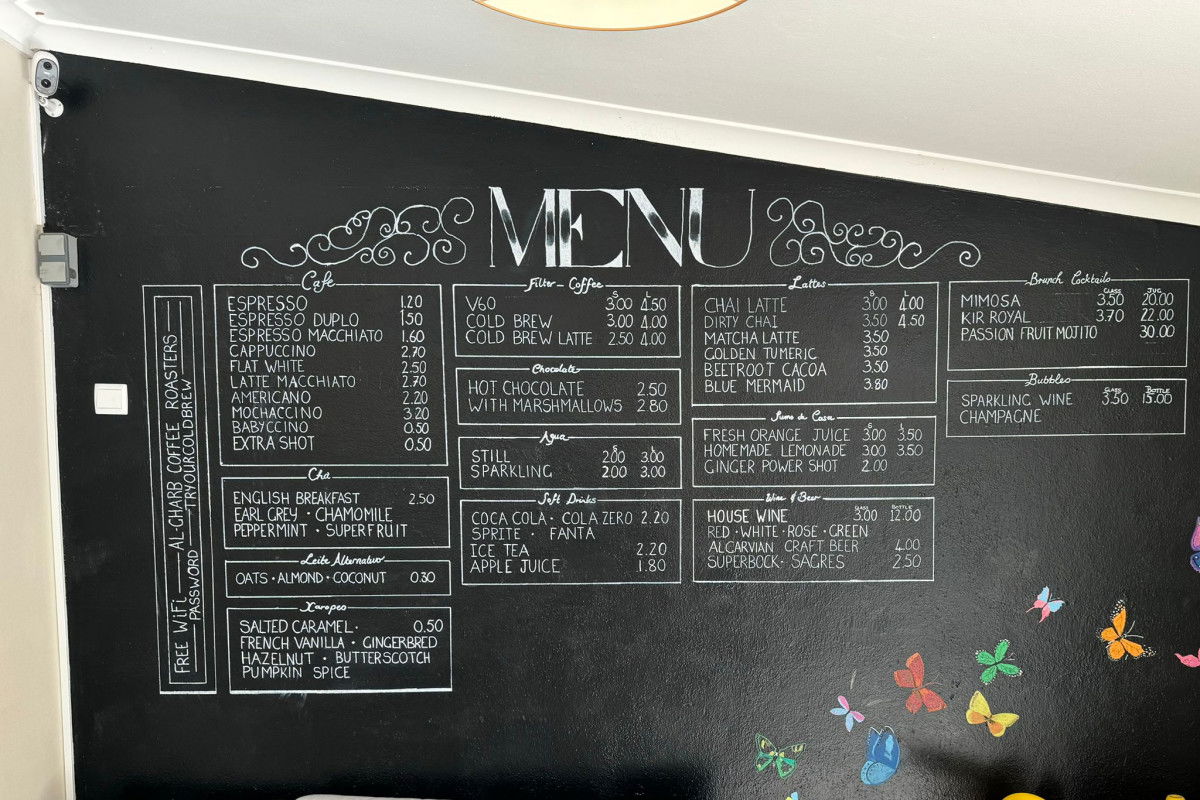 MENU
FREE WiFi AL-GHARB COFFEE ROASTERS
PASSWORD TRYOURCOLDBREW
Cafe
ESPRESSO 1.20
ESPRESSO DUPLO 1.50
ESPRESSO MACCHIATO 1.60
CAPPUCCINO 2.70
FLAT WHITE 2.50
LATTE MACCHIATO 2.70
AMERICANO 2.20
MOCHACCINO 3.20
BABYCCINO 0.50
EXTRA SHOT 0.50
Cha
ENGLISH BREAKFAST 2.50
EARL GREY · CHAMOMILE
PEPPERMINT · SUPERFRUIT
Leite Alternativo
OATS · ALMOND · COCONUT 0.30
Xaropes
SALTED CARAMEL · 0.50
FRENCH VANILLA · GINGERBRED
HAZELNUT · BUTTERSCOTCH
PUMPKIN SPICE
Filter - Coffee
S L
V60 3.00 4.50
COLD BREW 3.00 4.00
COLD BREW LATTE 2.50 4.00
Chocolate
HOT CHOCOLATE 2.50
WITH MARSHMALLOWS 2.80
Agua
S L
STILL 2.00 3.00
SPARKLING 2.00 3.00
Soft Drinks
COCA COLA · COLA ZERO 2.20
SPRITE · FANTA
ICE TEA 2.20
APPLE JUICE 1.80
Lattes
S L
CHAI LATTE 3.00 4.00
DIRTY CHAI 3.50 4.50
MATCHA LATTE 3.50
GOLDEN TUMERIC 3.50
BEETROOT CACOA 3.50
BLUE MERMAID 3.80
Sumo de Casa
S L
FRESH ORANGE JUICE 3.00 3.50
HOMEMADE LEMONADE 3.00 3.50
GINGER POWER SHOT 2.00
Wine & Beer
GLASS BOTTLE
HOUSE WINE 3.00 12.00
RED · WHITE · ROSE · GREEN
ALGARVIAN CRAFT BEER 4.00
SUPERBOCK · SAGRES 2.50
Brunch Cocktails
GLASS JUG
MIMOSA 3.50 20.00
KIR ROYAL 3.70 22.00
PASSION FRUIT MOJITO 30.00
Bubbles
GLASS BOTTLE
SPARKLING WINE 3.50 15.00
CHAMPAGNE